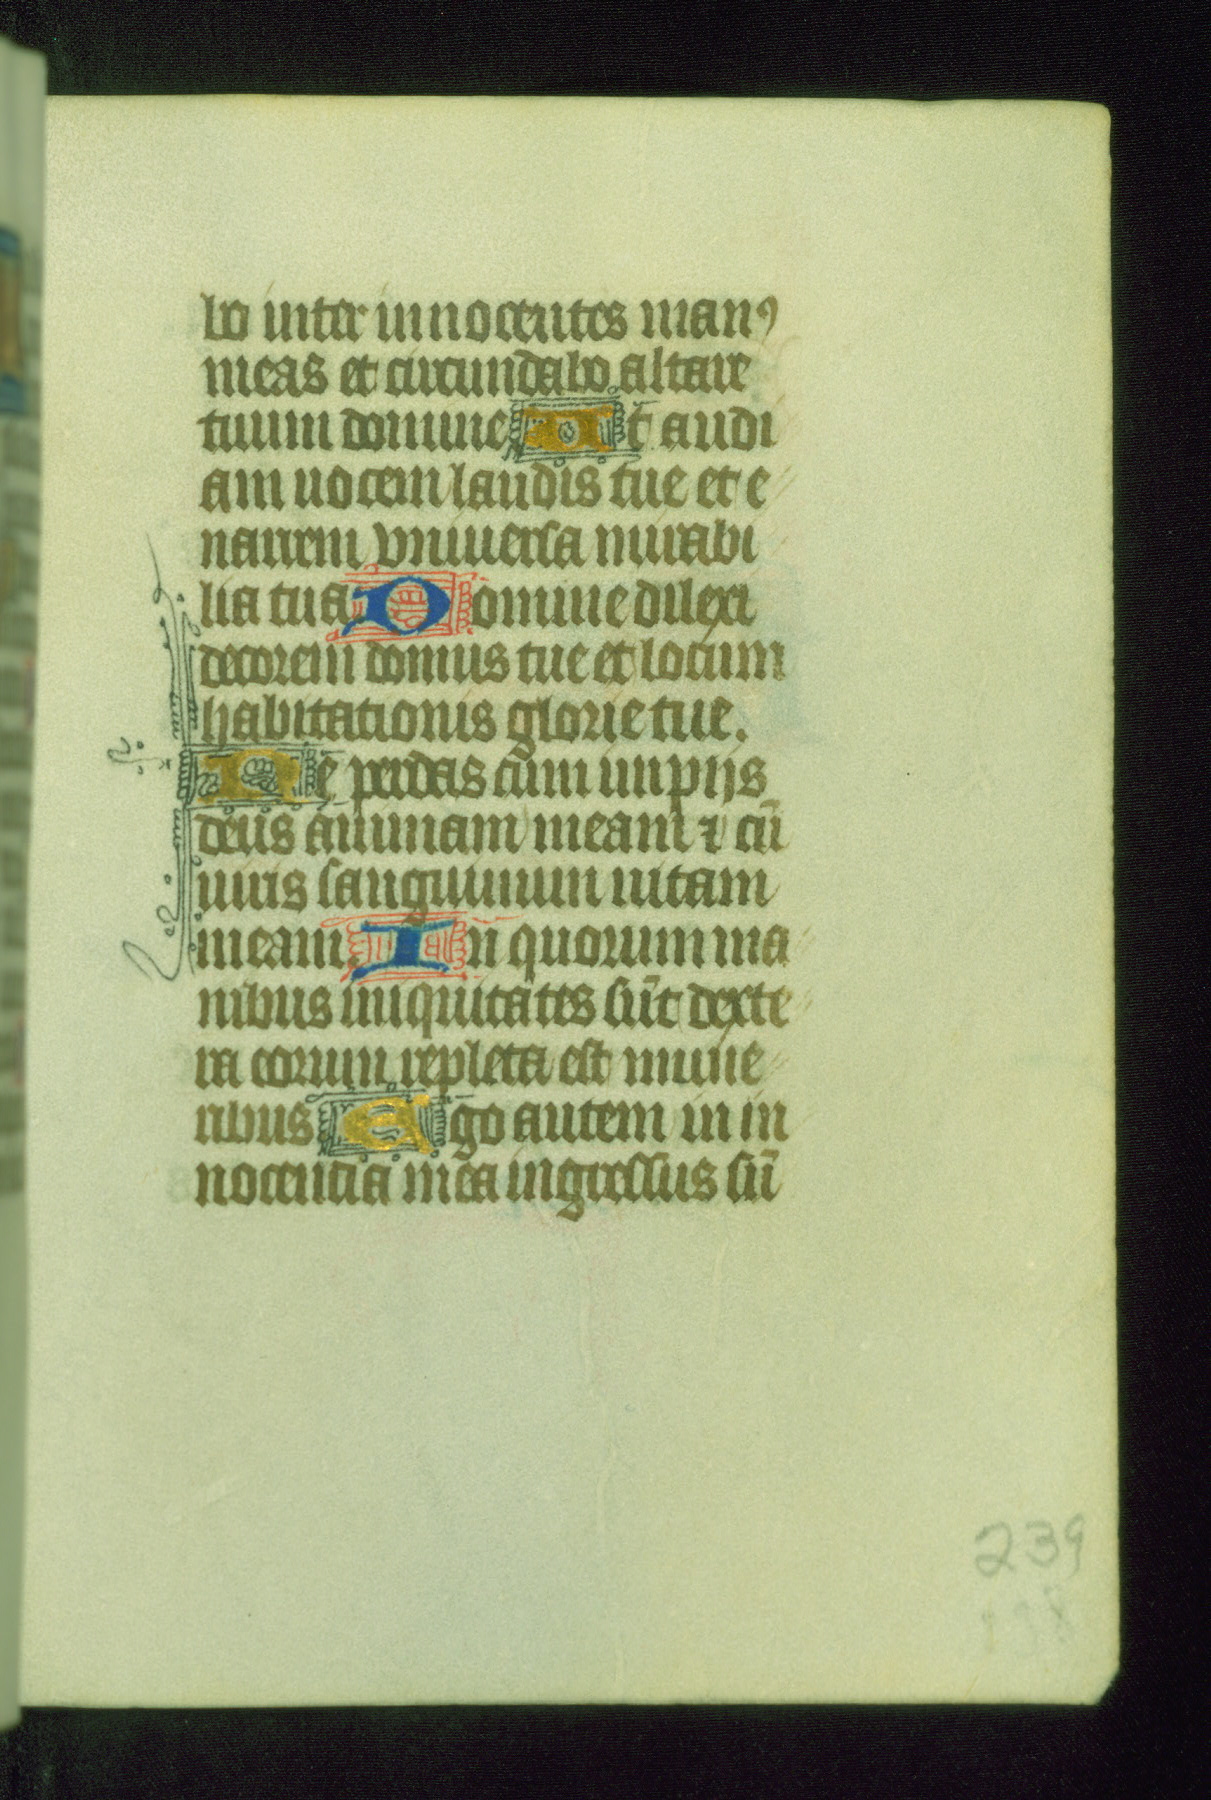 bo inter innocentes manꝰ
meas et circundabo altare
tuum domine Ut audi
am uocem laudis tue et e
narrem vniuersa mirabi
lia tua Domine dilexi
decorem domus tue et locum
habitationis glorie tue.
Ne perdas cum impijs
deus animam meam ⁊ cū
uiris sanguinum uitam
meam. In quorum ma
nibus iniquitates sūt dexte
ra eorum repleta est mune
ribus Ego autem in in
nocentia mea ingressus sū
239
198